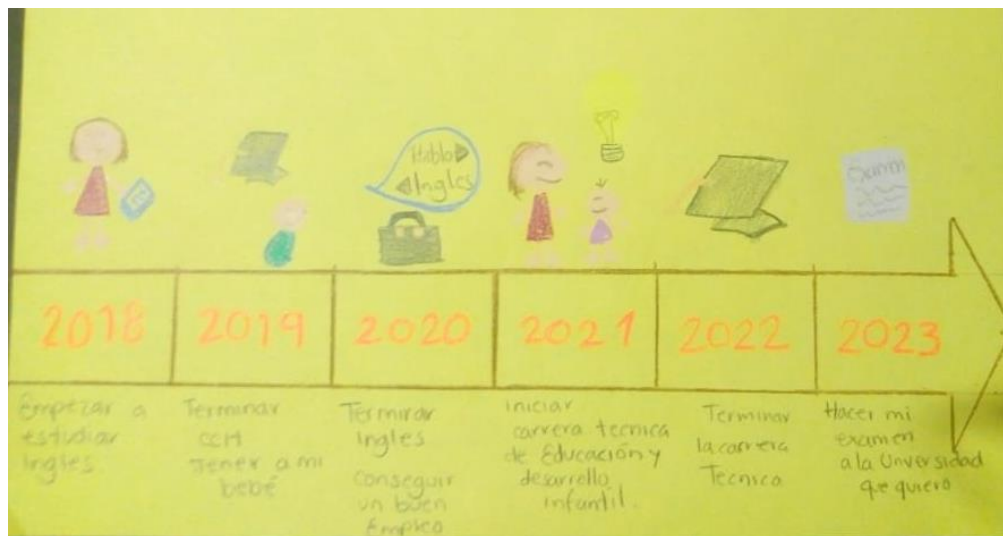 Hablo
Ingles
Exam
2018
2019
2020
2021
2022
2023
Empezar a
estudiar
Ingles
Terminar
CCH
Tener a mi
bebé
Termirar
Ingles
conseguir
un buen
Empleo
iniciar
carrera tecnica
de Educación y
desarrello
infantil.
Terminar
la carrera
Tecnica
Hacer mi
examen
a la Unversidad
que quiero